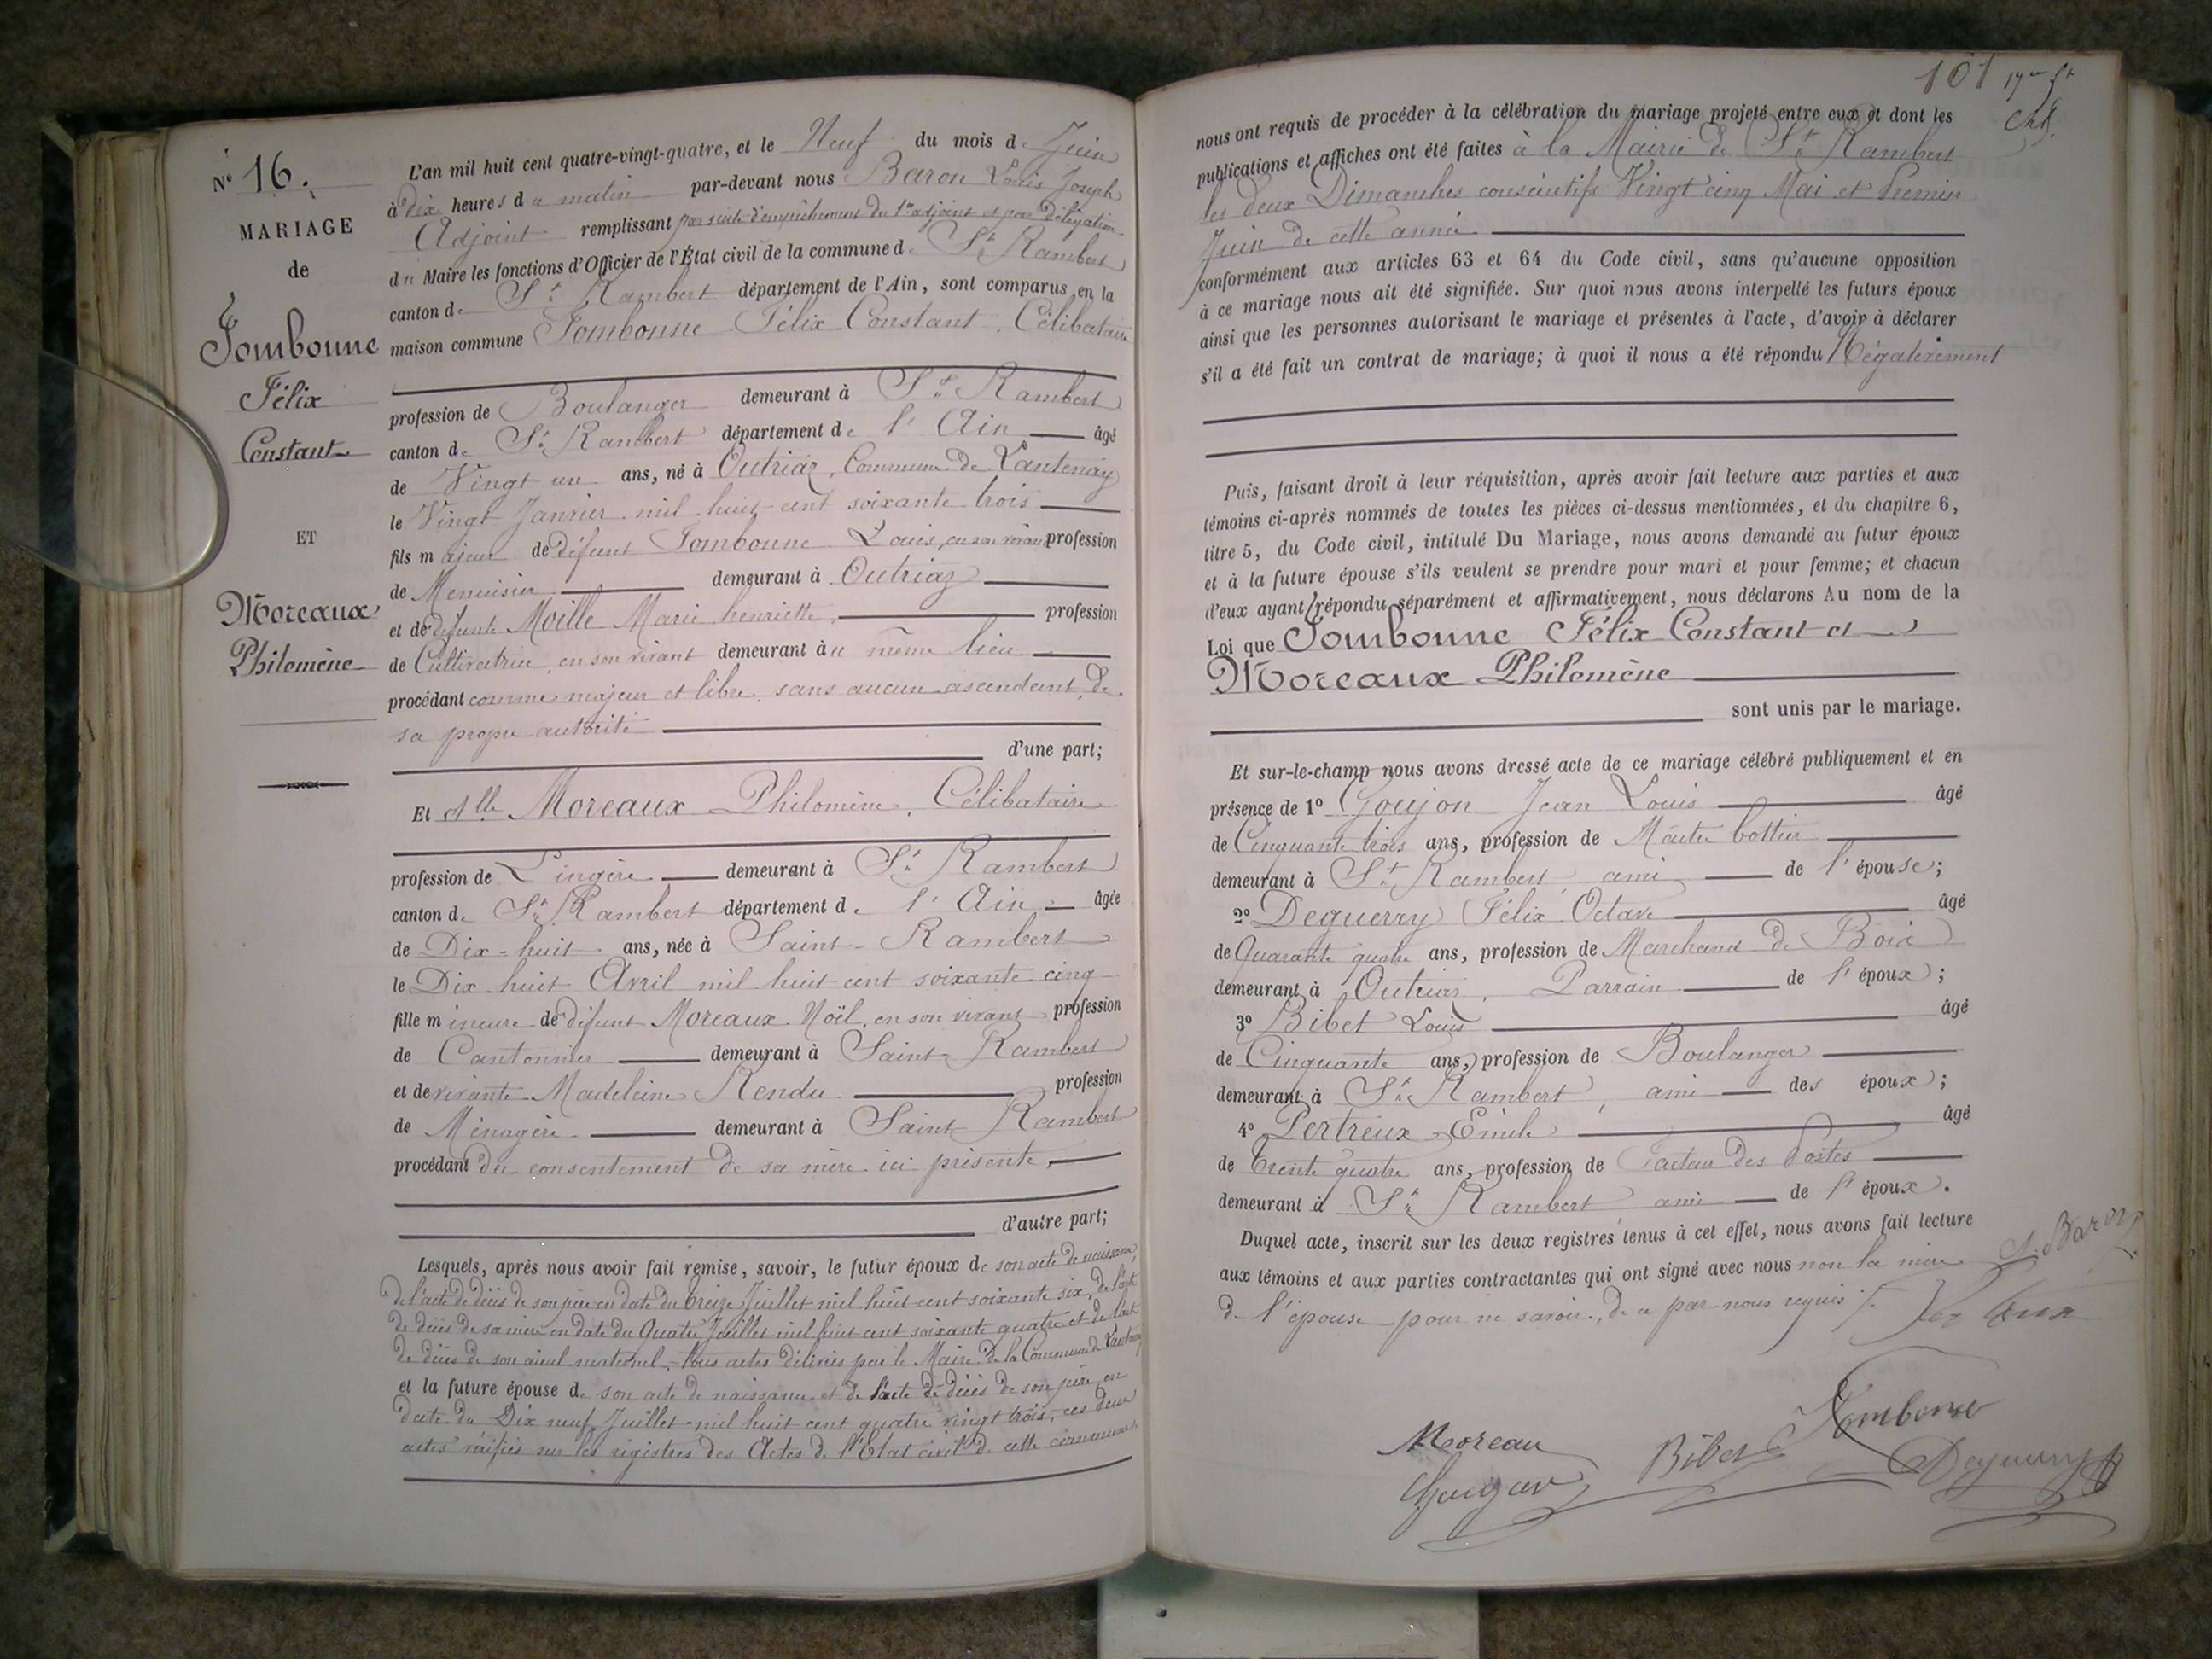 N° 16.
MARIAGE
de
Tombonne
Félix
Constant
ET
Moreaux
Philomène
L'an mil huit cent quatre-vingt-quatre, et le Neuf du mois de Juin
à dix heures du matin par-devant nous Baron Louis Joseph
Adjoint remplissant par suite d'empêchement du 1er adjoint et par délégation
du Maire les fonctions d'Officier de l'État civil de la commune de St Rambert
canton de St Rambert département de l'Ain, sont comparus en la
maison commune Tombonne Félix Constant, Célibataire
profession de Boulanger demeurant à St Rambert
canton de St Rambert département de l'Ain âgé
de Vingt un ans, né à Outriaz, Commune de Lantenay
le Vingt Janvier mil huit cent soixante trois
fils majeur de défunt Tombonne Louis, en son vivant profession
de Menuisier demeurant à Outriaz
et de défunte Moille Marie henriette, profession
de Cultivatrice en son vivant demeurant au même lieu
procédant comme majeur et libre sans aucun ascendant, de
sa propre autorité
d'une part;
Et Mlle Moreaux Philomène, Célibataire
profession de Lingère demeurant à St Rambert
canton de St Rambert département de l'Ain âgée
de Dix-huit ans, née à Saint-Rambert
le Dix huit Avril mil huit cent soixante cinq
fille mineure de défunt Moreaux Noël, en son vivant profession
de Cantonnier demeurant à Saint-Rambert
et de vivante Madeleine Rendu profession
de Ménagère demeurant à Saint Rambert
procédant du consentement de sa mère ici présente,
d'autre part;
Lesquels, après nous avoir fait remise, savoir, le futur époux de son acte de naissance,
de l'acte de décès de son père en date du treize Juillet mil huit cent soixante six, de l'acte
de décès de sa mère en date du Quatre Juillet mil huit cent soixante quatre et de l'acte
de décès de son aïeul maternel, tous actes délivrés par le Maire de la Commune de Lantenay
et la future épouse de son acte de naissance et de l'acte de décès de son père en
date du Dix neuf Juillet mil huit cent quatre vingt trois, ces deux
actes vérifiés sur les registres des Actes de l'Etat civil de cette commune
101
nous ont requis de procéder à la célébration du mariage projeté entre eux et dont les
publications et affiches ont été faites à la Mairie de St Rambert
les deux Dimanches consécutifs Vingt cinq Mai et Premier
Juin de cette année
conformément aux articles 63 et 64 du Code civil, sans qu'aucune opposition
à ce mariage nous ait été signifiée. Sur quoi nous avons interpellé les futurs époux
ainsi que les personnes autorisant le mariage et présentes à l'acte, d'avoir à déclarer
s'il a été fait un contrat de mariage; à quoi il nous a été répondu Négativement
Puis, faisant droit à leur réquisition, après avoir fait lecture aux parties et aux
témoins ci-après nommés de toutes les pièces ci-dessus mentionnées, et du chapitre 6,
titre 5, du Code civil, intitulé Du Mariage, nous avons demandé au futur époux
et à la future épouse s'ils veulent se prendre pour mari et pour femme; et chacun
d'eux ayant répondu séparément et affirmativement, nous déclarons Au nom de la
Loi que Tombonne Félix Constant et
Moreaux Philomène
sont unis par le mariage.
Et sur-le-champ nous avons dressé acte de ce mariage célébré publiquement et en
présence de 1° Goujon Jean Louis âgé
de Cinquante trois ans, profession de Maître bottier
demeurant à St Rambert, ami de l'épouse;
2° Deguerry Félix Octave âgé
de Quarante quatre ans, profession de Marchand de Bois
demeurant à Outriaz, Parrain de l'époux;
3° Bibet Louis âgé
de Cinquante ans, profession de Boulanger
demeurant à St Rambert, ami des époux;
4° Pertreux Emile âgé
de trente quatre ans, profession de Facteur des Postes
demeurant à St Rambert ami de l'époux.
Duquel acte, inscrit sur les deux registres tenus à cet effet, nous avons fait lecture
aux témoins et aux parties contractantes qui ont signé avec nous non la mère
de l'épouse pour ne savoir, de ce par nous requis
L. Baron
Tombonne
Moreau
Bibet
Deguerry
Goujon